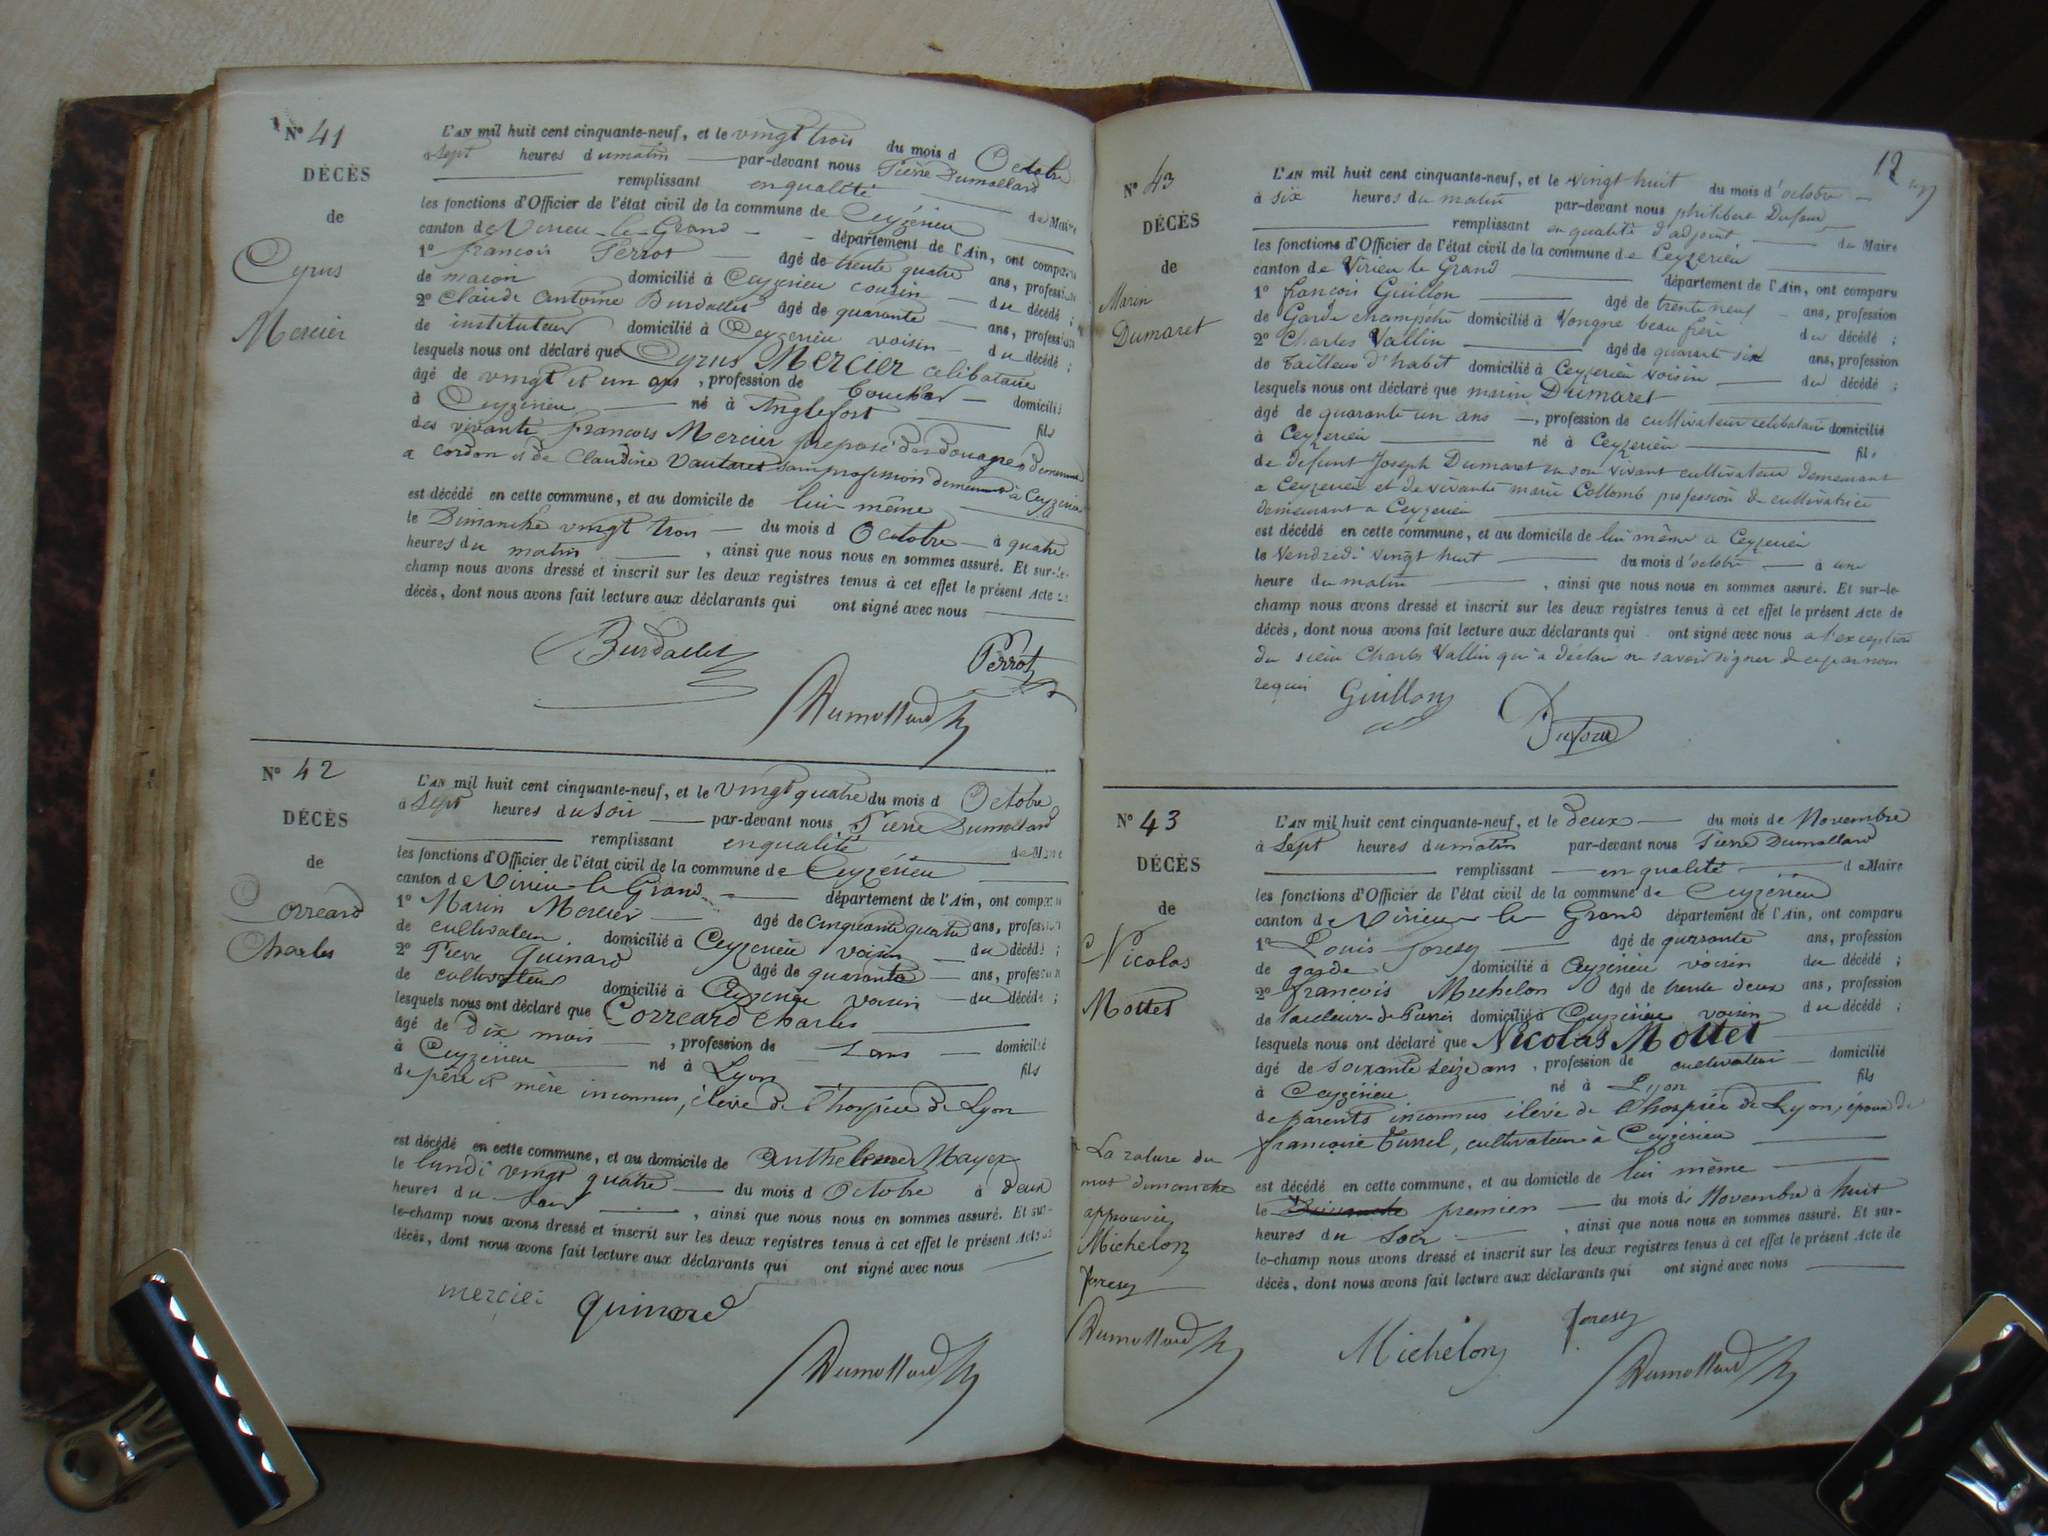 N° 41
DÉCÈS
de
Cyrus
Mercier
L'AN mil huit cent cinquante-neuf, et le vingt trois du mois d Octobre
à sept heures du matin par-devant nous Pierre Dumollard
remplissant en qualité de Maire
les fonctions d'Officier de l'état civil de la commune de Ceyzérieu
canton de Virieu-le-Grand département de l'Ain, ont comparu
1° françois Perrot âgé de trente quatre ans, profession
de maçon domicilié à Ceyzerieu cousin du décédé ;
2° Claude Antoine Burdallet âgé de quarante ans, profession
de instituteur domicilié à Ceyzerieu voisin du décédé ;
lesquels nous ont déclaré que Cyrus Mercier celibataire
âgé de vingt et un ans , profession de domicilié
à Ceyzerieu né à Anglefort fils
des vivants françois Mercier preposé des douagnes demeurant
a Cordon et de Claudine Vautaret sans profession demeurant à Ceyzerieu
est décédé en cette commune, et au domicile de lui-même
le Dimanche vingt trois du mois d Octobre à quatre
heures du matin , ainsi que nous nous en sommes assuré. Et sur-le-
champ nous avons dressé et inscrit sur les deux registres tenus à cet effet le présent Acte de
décès, dont nous avons fait lecture aux déclarants qui ont signé avec nous
Burdallet
Perrot
Dumollard
N° 42
DÉCÈS
de
Correard
Charles
L'AN mil huit cent cinquante-neuf, et le vingt quatre du mois d Octobre
à sept heures du soir par-devant nous Pierre Dumollard
remplissant en qualité de Maire
les fonctions d'Officier de l'état civil de la commune de Ceyzérieu
canton de Virieu-le-Grand département de l'Ain, ont comparu
1° Marin Mercier âgé de cinquante quatre ans, profession
de cultivateur domicilié à Ceyzerieu voisin du décédé ;
2° Pierre Quinard âgé de quarante ans, profession
de cultivateur domicilié à Ceyzerieu voisin du décédé ;
lesquels nous ont déclaré que Correard Charles
âgé de Dix mois , profession de sans domicilié
à Ceyzerieu né à Lyon fils
de père et mère inconnus, élève de l'hospice de Lyon
est décédé en cette commune, et au domicile de Anthelme Mayer
le lundi vingt quatre du mois d Octobre à deux
heures du soir , ainsi que nous nous en sommes assuré. Et sur-
le-champ nous avons dressé et inscrit sur les deux registres tenus à cet effet le présent Acte de
décès, dont nous avons fait lecture aux déclarants qui ont signé avec nous
mercier quinard
Dumollard
12
N° 43
DÉCÈS
de
Marin
Dumaret
L'AN mil huit cent cinquante-neuf, et le vingt huit du mois d'octobre
à six heures du matin par-devant nous philibert Dufour
remplissant en qualité d'adjoint du Maire
les fonctions d'Officier de l'état civil de la commune de Ceyzerieu
canton de Virieu le Grand département de l'Ain, ont comparu
1° françois Guillon âgé de trente neuf ans, profession
de Garde champetre domicilié à Vongne beau frère du décédé ;
2° Charles Vallin âgé de quarante six ans, profession
de Tailleur d'habit domicilié à Ceyzerieu voisin du décédé ;
lesquels nous ont déclaré que marin Dumaret
âgé de quarante un ans , profession de cultivateur celibataire domicilié
à Ceyzerieu né à Ceyzerieu fils
de defunt Joseph Dumaret en son vivant cultivateur demeurant
a Ceyzerieu et de vivante marie Collomb profession de cultivatrice
demeurant a Ceyzerieu
est décédé en cette commune, et au domicile de lui même a Ceyzerieu
le vendredi vingt huit du mois d'octobre à une
heure du matin , ainsi que nous nous en sommes assuré. Et sur-le-
champ nous avons dressé et inscrit sur les deux registres tenus à cet effet le présent Acte de
décès, dont nous avons fait lecture aux déclarants qui ont signé avec nous a l'exception
du sieur Charles Vallin qui a déclaré ne savoir signer de ce par nous
requis Guillon
Dufour
N° 43
DÉCÈS
de
Nicolas
Mottet
La rature du
mot dimanche
approuvée
Michelon
Joresy
Dumollard
L'AN mil huit cent cinquante-neuf, et le deux du mois de Novembre
à sept heures du matin par-devant nous Pierre Dumollard
remplissant en qualité de Maire
les fonctions d'Officier de l'état civil de la commune de Ceyzérieu
canton de Virieu-le-Grand département de l'Ain, ont comparu
1° Louis Joresy âgé de quarante ans, profession
de garde domicilié à Ceyzérieu voisin du décédé ;
2° françois Michelon âgé de trente deux ans, profession
de tailleur de Pierres domicilié à Ceyzérieu voisin du décédé ;
lesquels nous ont déclaré que Nicolas Mottet
âgé de soixante seize ans , profession de cultivateur domicilié
à Ceyzérieu né à Lyon fils
de parents inconnus élevé de l'hospice de Lyon, époux de
françoise Turrel, cultivateur à Ceyzérieu
est décédé en cette commune, et au domicile de lui même
le Dimanche premier du mois de Novembre à huit
heures du soir , ainsi que nous nous en sommes assuré. Et sur-
le-champ nous avons dressé et inscrit sur les deux registres tenus à cet effet le présent Acte de
décès, dont nous avons fait lecture aux déclarants qui ont signé avec nous
Michelon Joresy
Dumollard